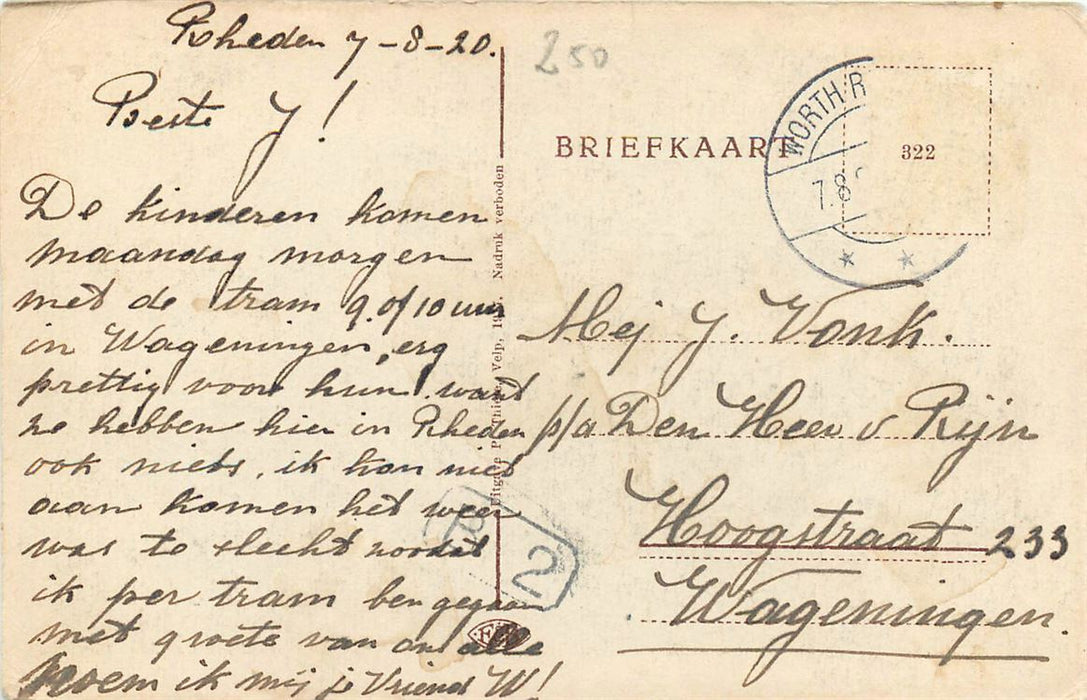 Rheden 7-8-20.
Beste J!
De kinderen komen
maandag morgen
met de tram 9 of 10 uur
in Wageningen, erg
prettig voor hun want
ze hebben hier in Rheden
ook niets, ik kan niet
aan komen het weer
was te slecht zoodat
ik per tram ben gegaan
met groete van ons alle
noem ik mij je Vriend W!
250
BRIEFKAART
322
WORTH-R
7.8
Nadruk verboden
Velp,
Uitgave
2
Mej J. Vonk.
p/a Den Heer v Rijn
Hoogstraat 233
Wageningen.